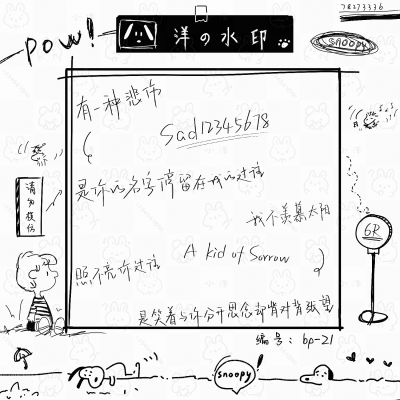 78273336
pow!
洋の水印
snoopy
有一种悲伤
Sad12345678
(
是你的名字停留在我的过往
我不羡慕太阳
照不亮你过往
A kid of Sorrow
)
是笑着与你分开思念却背对背张望
请勿模仿
6R
编号：bp-21
snoopy!